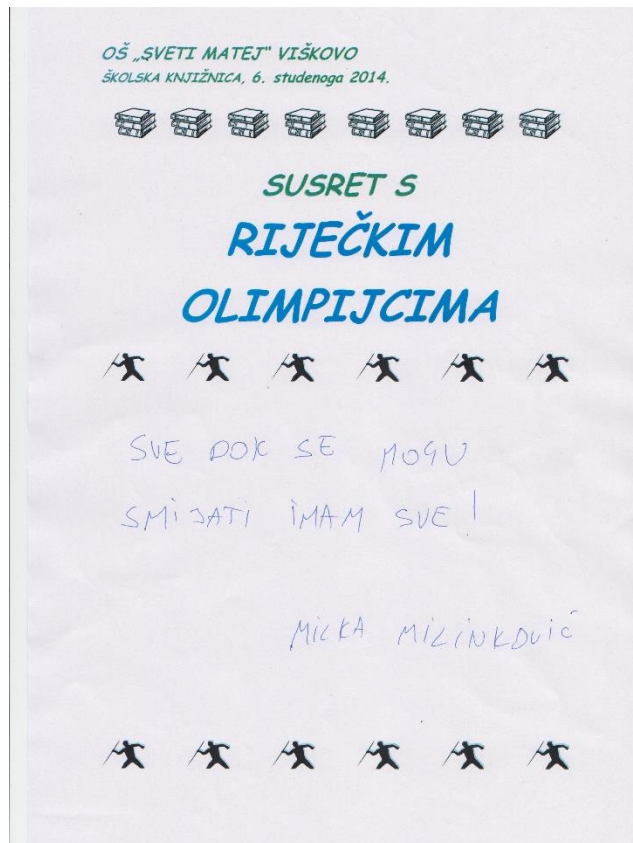 OŠ „SVETI MATEJ“ VIŠKOVO
ŠKOLSKA KNJIŽNICA, 6. studenoga 2014.
SUSRET S
RIJEČKIM
OLIMPIJCIMA
SVE DOK SE MOGU
SMIJATI IMAM SVE!
MILKA MILINKOVIĆ